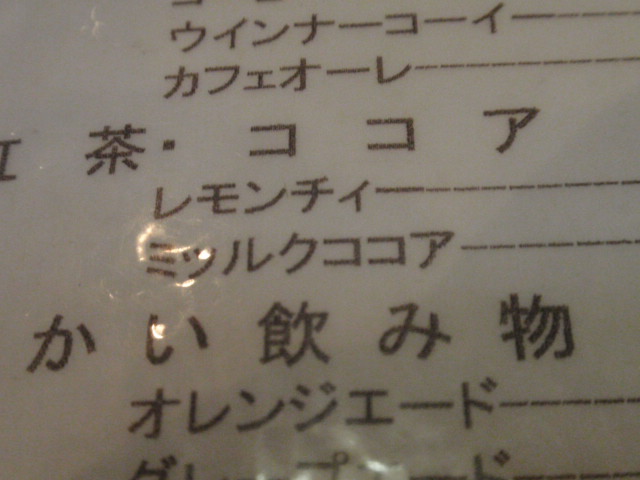 ウインナーコーイー
カフェオーレ
紅茶・ココア
レモンチィー
ミッルクココア
かい飲み物
オレンジエード
グレープエード